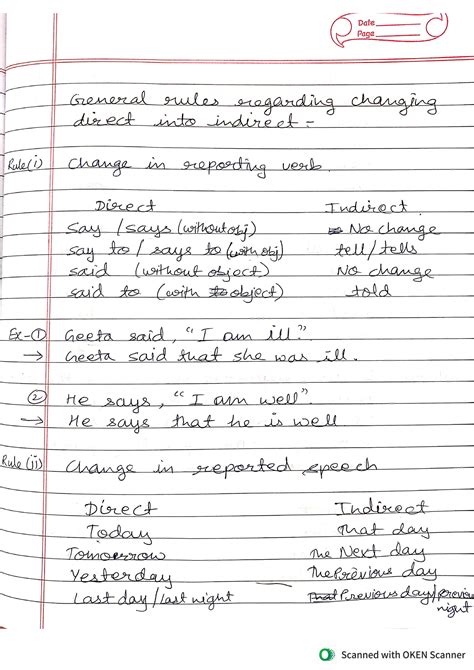 Date
Page
General rules regarding changing
direct into indirect –
Rule(i) Change in reporting verb.
Direct Indirect
Say / says (without obj) No change
say to / says to (with obj) tell / tells
said (without object) No change
said to (with object) told
Ex-① Geeta said, “I am ill.”
→ Geeta said that she was ill.
② He says, “I am well”.
→ He says that he is well
Rule (ii) Change in reported speech
Direct Indirect
Today That day
Tomorrow The Next day
Yesterday The Previous day
Last day / Last night Previous day / previous night
Scanned with OKEN Scanner